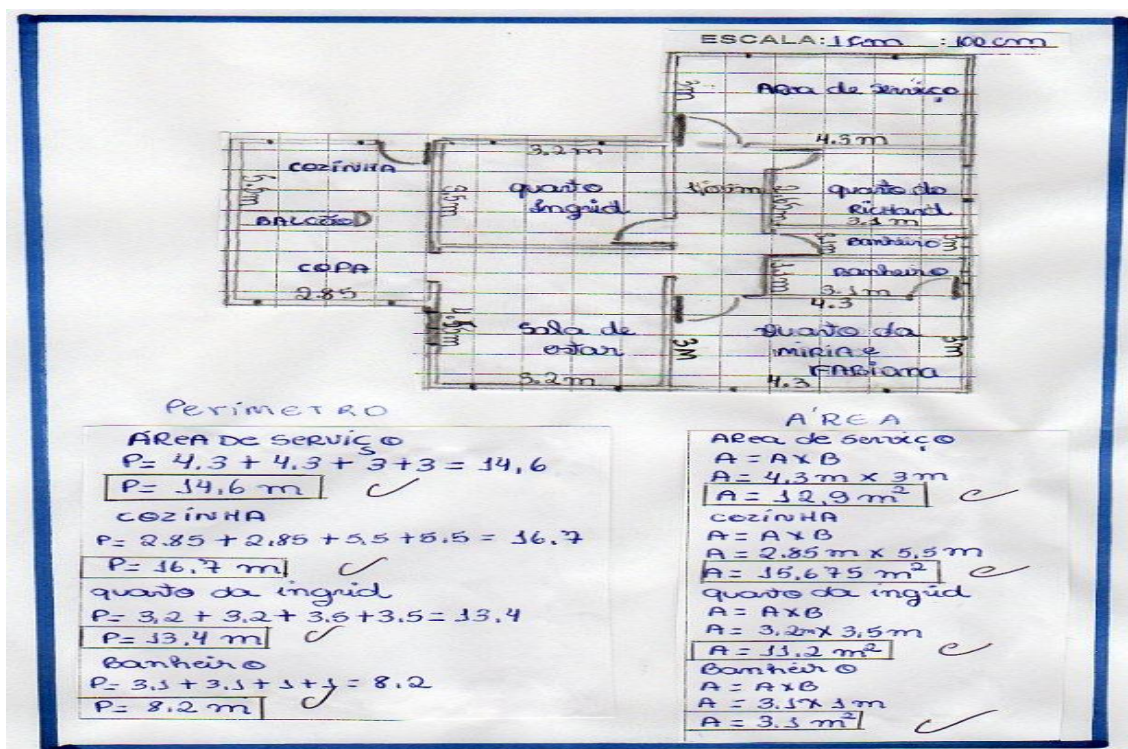 ESCALA: 1 cm : 100 cm
Area de serviço
3m
4.3 m
COZÍNHA
BALCÃO
COPA
2.85
5.5m
3.2 m
quarto
Ingrid
3.5m
quarto do
Richard
3.1 m
Banheiro
Banheiro
3.1m
4.3
Sala de
estar
3.2 m
3M
quarto da
MIRIA e
FABIANA
3m
4.3
PerímeTRO
ÁREA De SERVIÇO
P= 4.3 + 4.3 + 3 + 3 = 14,6
P= 14,6 m
COZÍNHA
P= 2.85 + 2.85 + 5.5 + 5.5 = 16.7
P= 16.7 m
quarto da ingrid
P= 3,2 + 3.2 + 3.5 + 3.5 = 13.4
P= 13,4 m
Banheiro
P= 3.1 + 3.1 + 1 + 1 = 8.2
P= 8.2 m
ÁREA
ARea de serviço
A = A x B
A = 4,3 m x 3 m
A = 12,9 m²
COZÍNHA
A = A x B
A = 2.85 m x 5,5 m
A = 15,675 m²
quarto da ingrid
A = A x B
A = 3.2m x 3,5 m
A = 11,2 m²
Banheiro
A = A x B
A = 3.1 x 1 m
A = 3.1 m²